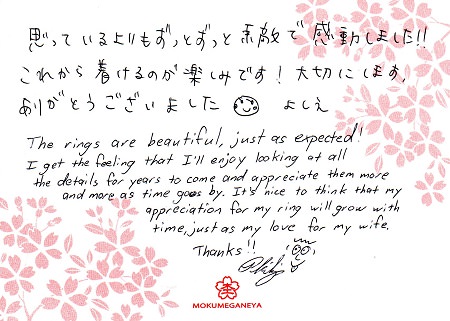 思っているよりもずっとずっと素敵で感動しました!!
これから着けるのが楽しみです!大切にします。
ありがとうございました よしえ
The rings are beautiful, just as expected!
I get the feeling that I'll enjoy looking at all
the details for years to come and appreciate them more
and more as time goes by. It's nice to think that my
appreciation for my ring will grow with
time, just as my love for my wife.
Thanks!!
MOKUMEGANEYA